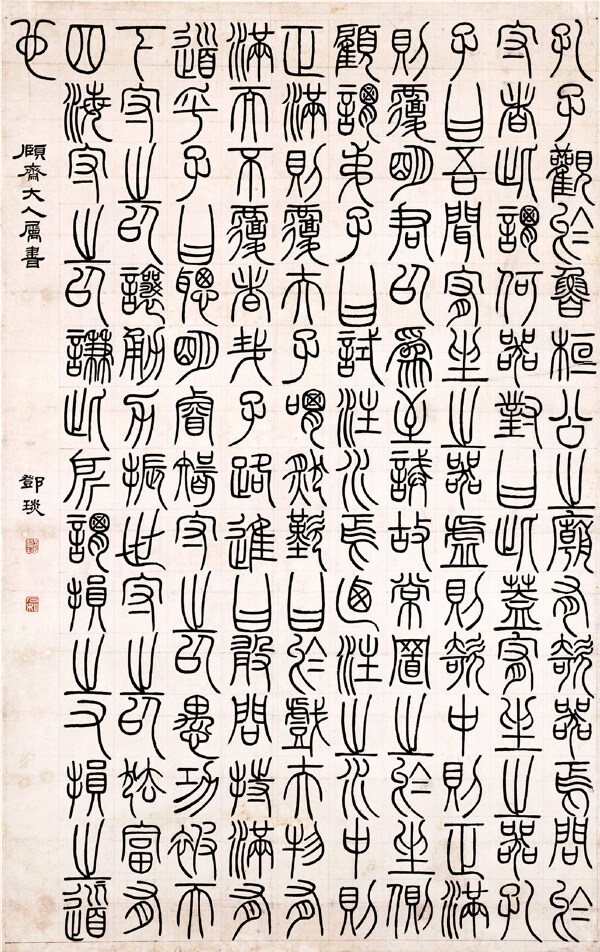 孔子觀於魯桓公之廟有欹器焉問於
守者此謂何器對曰此蓋宥坐之器孔
子曰吾聞宥坐之器虛則欹中則正滿
則覆明君以爲至誡故常置之於坐側
顧謂弟子曰試注水焉迺注之水中則
正滿則覆夫子喟然歎曰於戲夫物有
滿而不覆者哉子路進曰敢問持滿有
道乎子曰聰明睿智守之以愚功被天
下守之以讓勇力振世守之以怯富有
四海守之以謙此所謂損之又損之道
也
頤齋大人属書
鄧琰